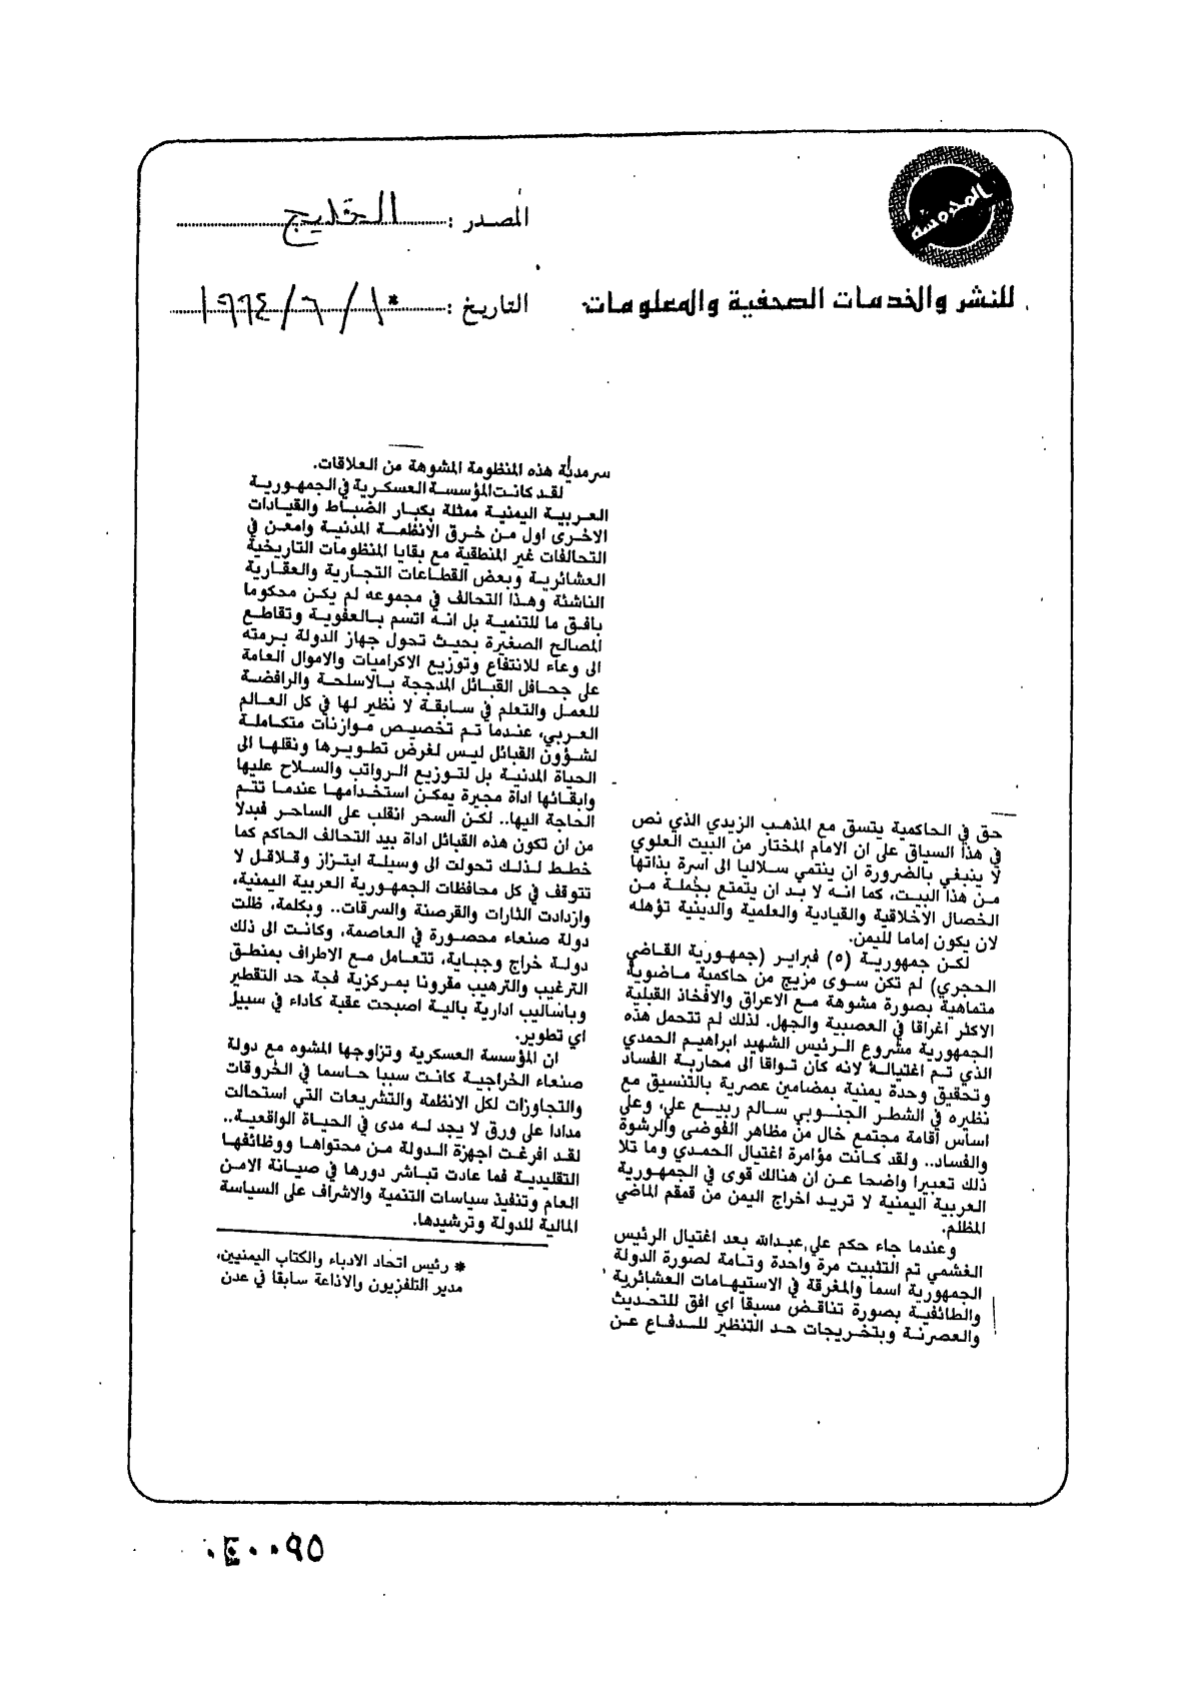 المدوسة
المصدر : الخليج
للنشر والخدمات الصحفية والمعلومات
التاريخ : ١٠/٦/١٩٩٤
حق في الحاكمية يتسق مع المذهب الزيدي الذي نص
في هذا السياق على ان الامام المختار من البيت العلوي
لا ينبغي بالضرورة ان ينتمي سلاليا الى اسرة بذاتها
من هذا البيت، كما انه لا بد ان يتمتع بجملة من
الخصال الأخلاقية والقيادية والعلمية والدينية تؤهله
لان يكون إماما لليمن.
لكن جمهورية (٥) فبراير (جمهورية القاضي
الحجري) لم تكن سوى مزيج من حاكمية ماضوية
متماهية بصورة مشوهة مع الاعراق والافخاذ القبلية
الاكثر اغراقا في العصبية والجهل. لذلك لم تتحمل هذه
الجمهورية مشروع الرئيس الشهيد ابراهيم الحمدي
الذي تم اغتياله لانه كان تواقا الى محاربة الفساد
وتحقيق وحدة يمنية بمضامين عصرية بالتنسيق مع
نظيره في الشطر الجنوبي سالم ربيع علي، وعلى
اساس اقامة مجتمع خال من مظاهر الفوضى والرشوة
والفساد.. ولقد كانت مؤامرة اغتيال الحمدي وما تلا
ذلك تعبيرا واضحا عن ان هنالك قوى في الجمهورية
العربية اليمنية لا تريد اخراج اليمن من قمقم الماضي
المظلم.
وعندما جاء حكم علي عبدالله بعد اغتيال الرئيس
الغشمي تم التثبيت مرة واحدة وتامة لصورة الدولة
الجمهورية اسما والمغرقة في الاستيهامات العشائرية
والطائفية بصورة تناقض مسبقا اي افق للتحديث
والعصرنة وبتخريجات حد التنظير للدفاع عن
سرمدية هذه المنظومة المشوهة من العلاقات.
لقد كانت المؤسسة العسكرية في الجمهورية
العربية اليمنية ممثلة بكبار الضباط والقيادات
الاخرى اول من خرق الانظمة المدنية وامعن في
التحالفات غير المنطقية مع بقايا المنظومات التاريخية
العشائرية وبعض القطاعات التجارية والعقارية
الناشئة وهذا التحالف في مجموعه لم يكن محكوما
بافق ما للتنمية بل انه اتسم بالعفوية وتقاطع
المصالح الصغيرة بحيث تحول جهاز الدولة برمته
الى وعاء للانتفاع وتوزيع الاكراميات والاموال العامة
على جحافل القبائل المدججة بالاسلحة والرافضة
للعمل والتعلم في سابقة لا نظير لها في كل العالم
العربي، عندما تم تخصيص موازنات متكاملة
لشؤون القبائل ليس لغرض تطويرها ونقلها الى
الحياة المدنية بل لتوزيع الرواتب والسلاح عليها
وابقائها اداة مجيرة يمكن استخدامها عندما تتم
الحاجة اليها.. لكن السحر انقلب على الساحر فبدلا
من ان تكون هذه القبائل اداة بيد التحالف الحاكم كما
خطط لذلك تحولت الى وسيلة ابتزاز وقلاقل لا
تتوقف في كل محافظات الجمهورية العربية اليمنية،
وازدادت الثارات والقرصنة والسرقات.. وبكلمة، ظلت
دولة صنعاء محصورة في العاصمة، وكانت الى ذلك
دولة خراج وجباية، تتعامل مع الاطراف بمنطق
الترغيب والترهيب مقرونا بمركزية فجة حد التقطير
وباساليب ادارية بالية اصبحت عقبة كاداء في سبيل
اي تطوير.
ان المؤسسة العسكرية وتزاوجها المشوه مع دولة
صنعاء الخراجية كانت سببا حاسما في الخروقات
والتجاوزات لكل الانظمة والتشريعات التي استحالت
مدادا على ورق لا يجد له مدى في الحياة الواقعية..
لقد افرغت اجهزة الدولة من محتواها ووظائفها
التقليدية فما عادت تباشر دورها في صيانة الامن
العام وتنفيذ سياسات التنمية والاشراف على السياسة
المالية للدولة وترشيدها.
* رئيس اتحاد الادباء والكتاب اليمنيين،
مدير التلفزيون والاذاعة سابقا في عدن